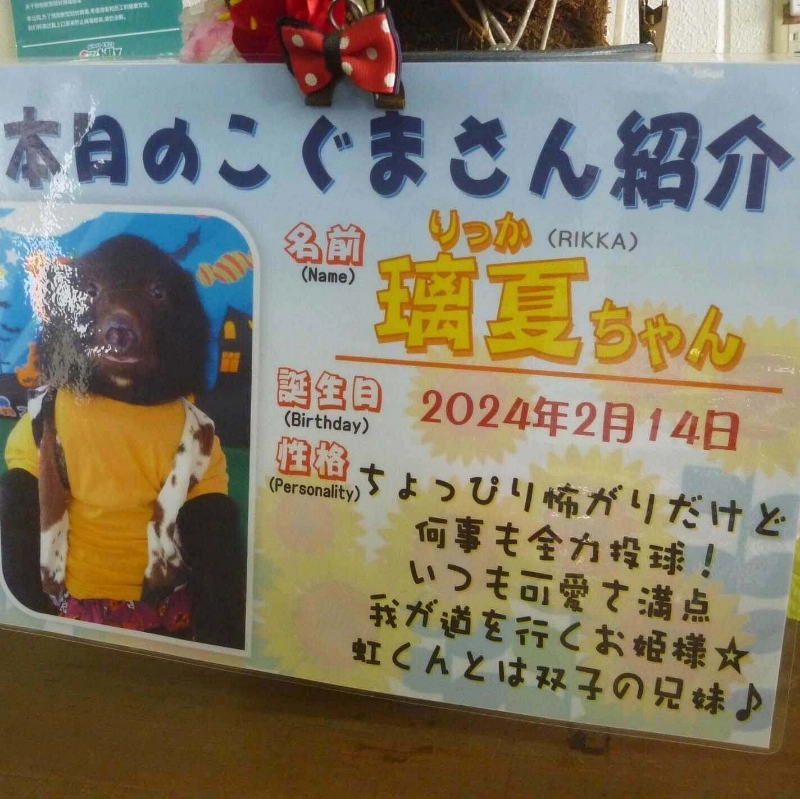 本日のこぐまさん紹介
名前
(Name)
りっか (RIKKA)
璃夏ちゃん
誕生日
(Birthday)
2024年2月14日
性格
(Personality)
ちょっぴり怖がりだけど
何事も全力投球！
いつも可愛さ満点
我が道を行くお姫様☆
虹くんとは双子の兄妹♪